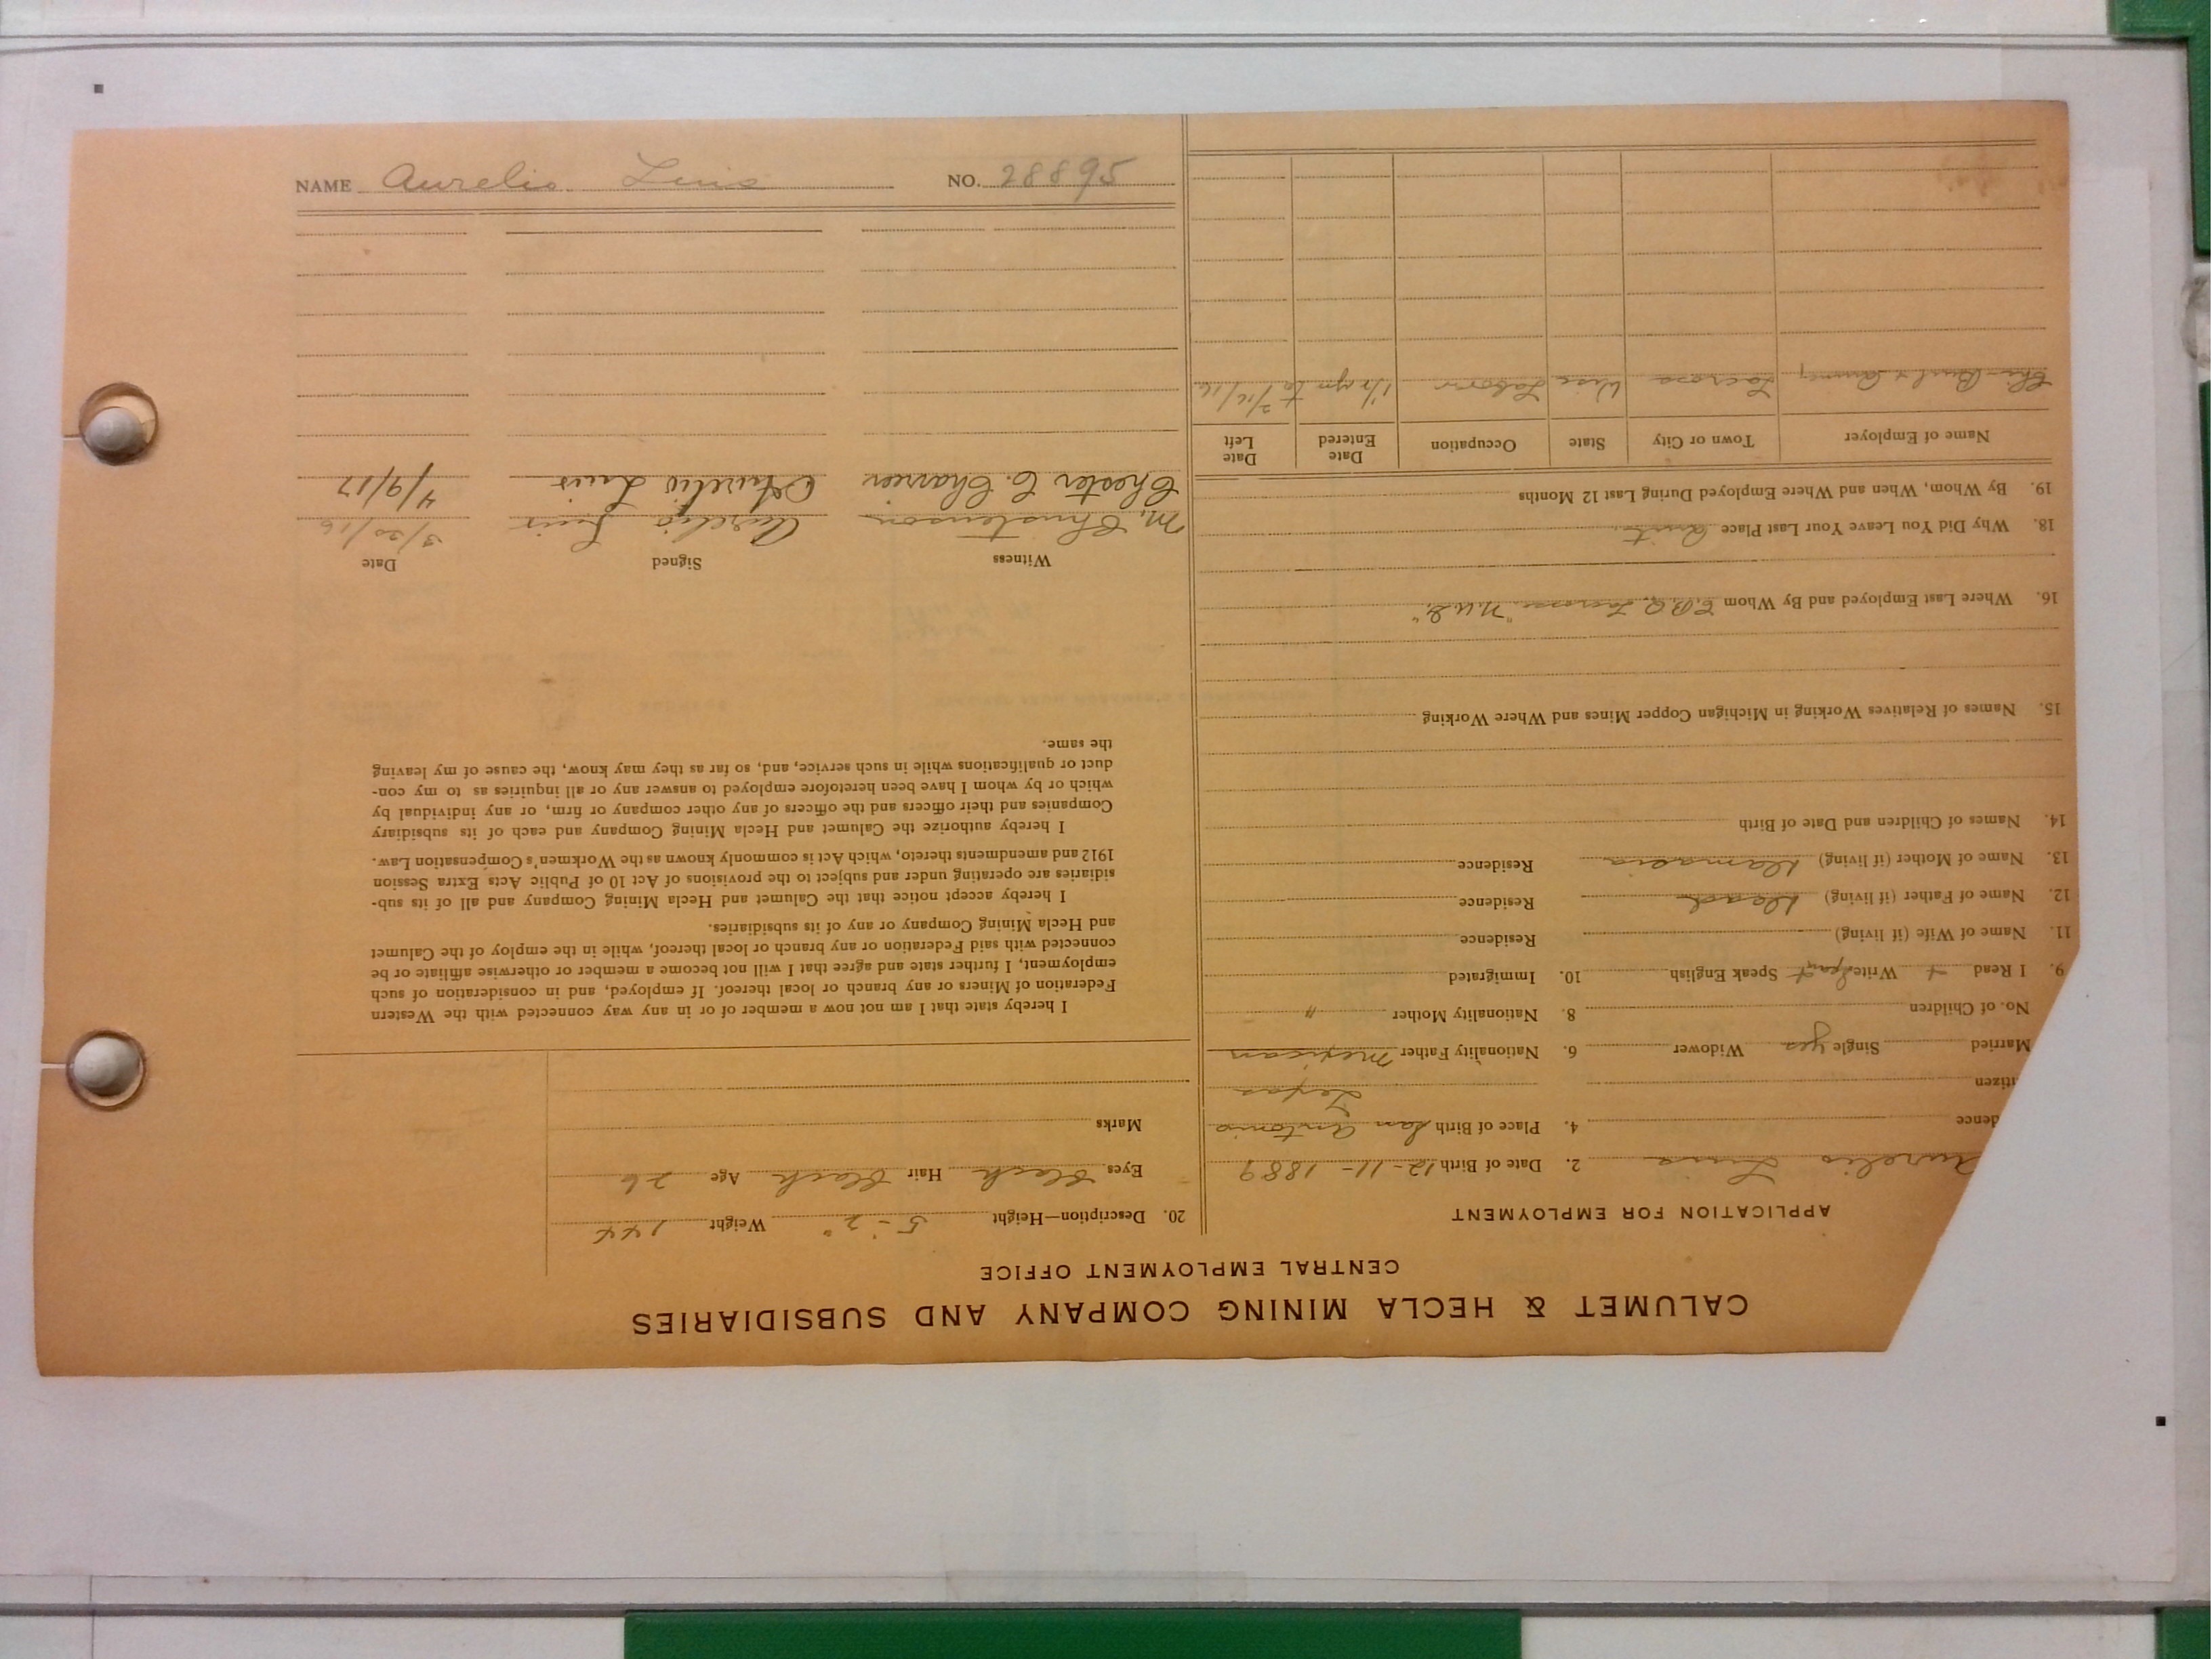 CALUMET & HECLA MINING COMPANY AND SUBSIDIARIES
CENTRAL EMPLOYMENT OFFICE
APPLICATION FOR EMPLOYMENT
Aurelio Luis 2. Date of Birth 12-11-1889
dence 4. Place of Birth San Antonio
tizen Texas
Married Single yes Widower 6. Nationality Father Mexican
No. of Children 8. Nationality Mother "
9. I Read + Write Speak English 10. Immigrated
11. Name of Wife (if living) Residence
12. Name of Father (if living) dead Residence
13. Name of Mother (if living) Residence
14. Names of Children and Date of Birth
15. Names of Relatives Working in Michigan Copper Mines and Where Working
16. Where Last Employed and By Whom
18. Why Did You Leave Your Last Place Quit
19. By Whom, When and Where Employed During Last 12 Months
Name of Employer Town or City State Occupation Date Entered Date Left
Lacrosse Wisc Labor
20. Description—Height 5'-2" Weight 144
Eyes black Hair black Age 26
Marks
I hereby state that I am not now a member of or in any way connected with the Western
Federation of Miners or any branch or local thereof. If employed, and in consideration of such
employment, I further state and agree that I will not become a member or otherwise affiliate or be
connected with said Federation or any branch or local thereof, while in the employ of the Calumet
and Hecla Mining Company or any of its subsidiaries.
I hereby accept notice that the Calumet and Hecla Mining Company and all of its sub-
sidiaries are operating under and subject to the provisions of Act 10 of Public Acts Extra Session
1912 and amendments thereto, which Act is commonly known as the Workmen's Compensation Law.
I hereby authorize the Calumet and Hecla Mining Company and each of its subsidiary
Companies and their officers and the officers of any other company or firm, or any individual by
which or by whom I have been heretofore employed to answer any or all inquiries as to my con-
duct or qualifications while in such service, and, so far as they may know, the cause of my leaving
the same.
Witness Signed Date
M. Christenson Aurelio Luis 3/20/16
Chester C. Aurelio Luis 4/9/17
NAME Aurelio Luis NO. 28895